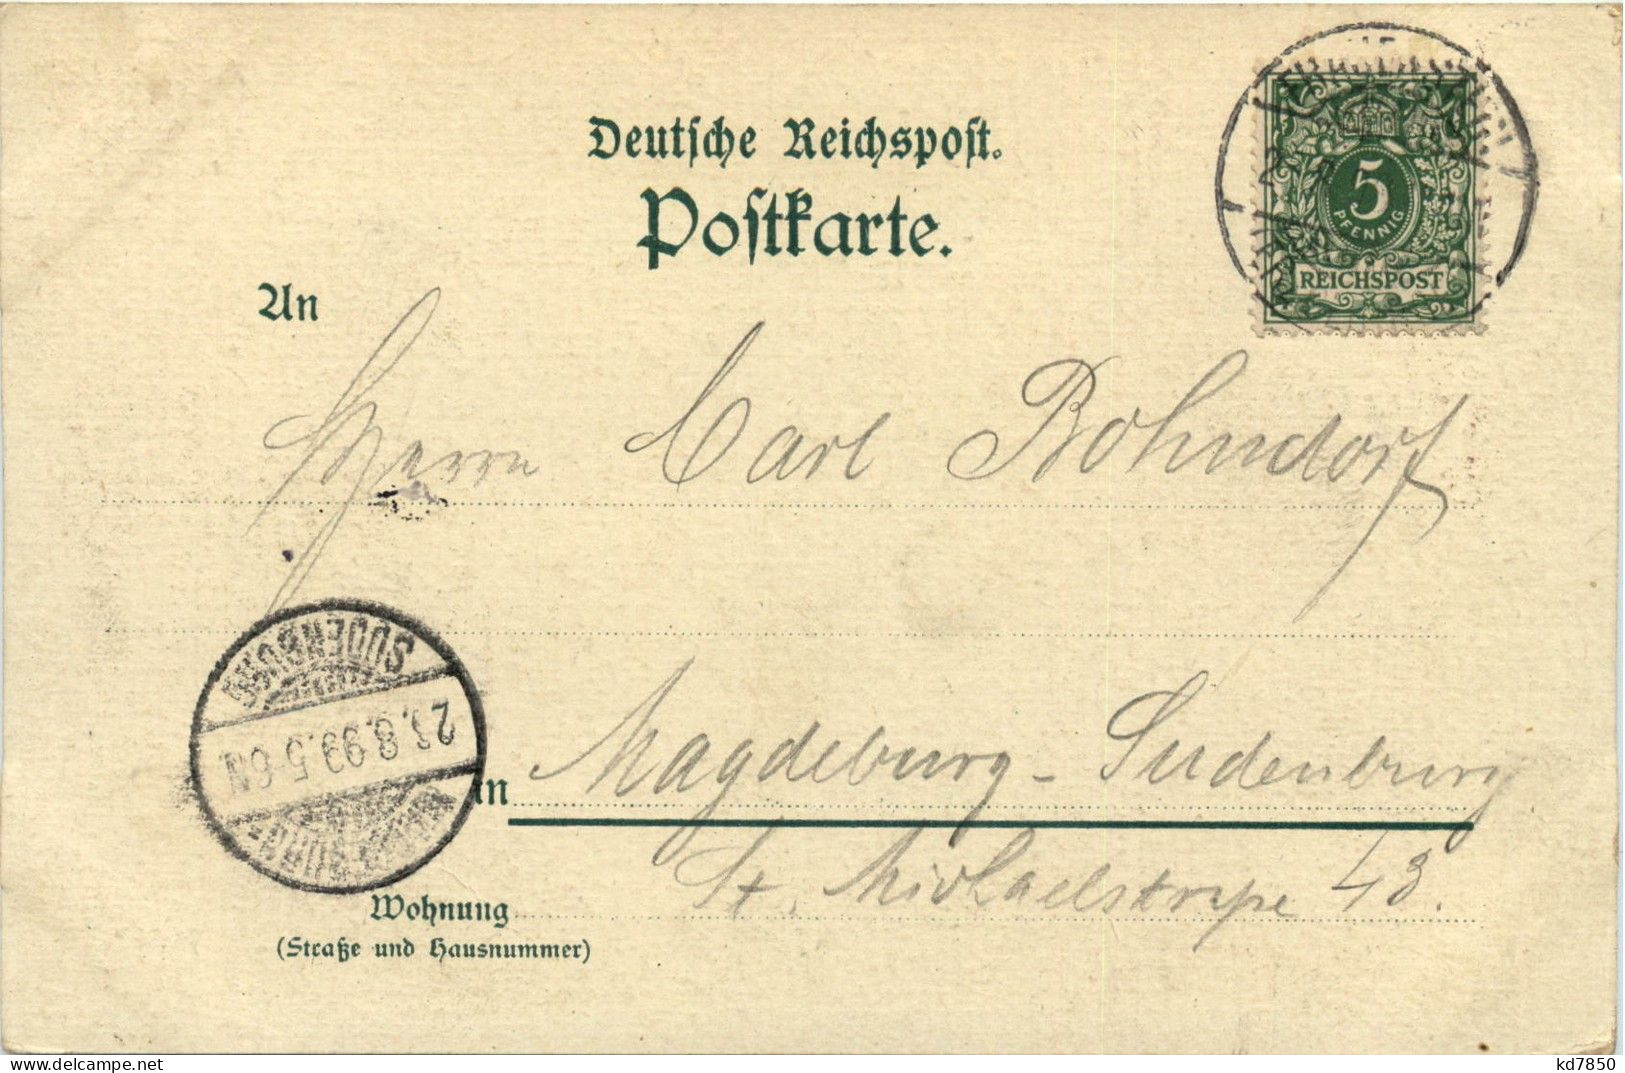 Deutsche Reichspost.
Postkarte.
5
PFENNIG
REICHSPOST
An
Herrn Carl Bohndorf
SUDENBURG
23.8.99.5-6N
in Magdeburg - Sudenburg
St. Michaelstrasse 43.
Wohnung
(Straße und Hausnummer)
kd7850